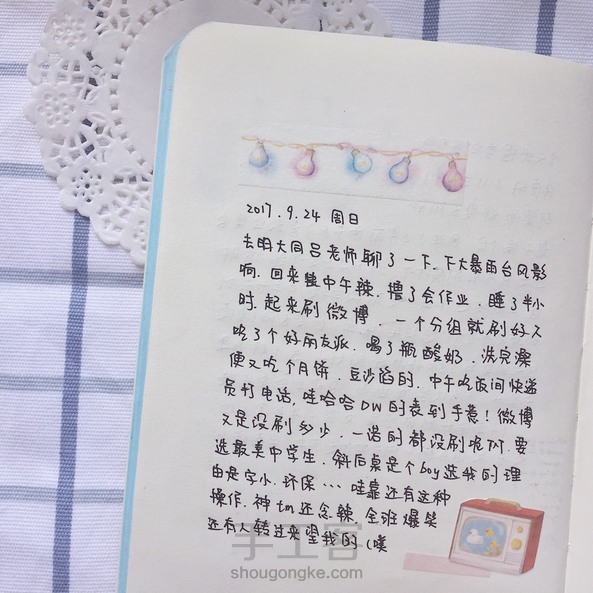 2017.9.24 周日
去明大同吕老师聊了一下.下大暴雨台风影
响.回来整中午辣.撸了会作业.睡了半小
时.起来刷微博.一个分组就刷好久
吃了个好丽友派.喝了瓶酸奶.洗完澡
便又吃个月饼.豆沙馅的.中午吃饭间快递
员打电话.哇哈哈DW的表到手惹！微博
又是没刷多少.一诺的都没刷呢TAT.要
选最美中学生.斜后桌是个boy选我的理
由是字小.环保…哇靠还有这种
操作.神tm还念辣.全班爆笑
还有人转过来望我的(嘆
手工客
shougongke.com